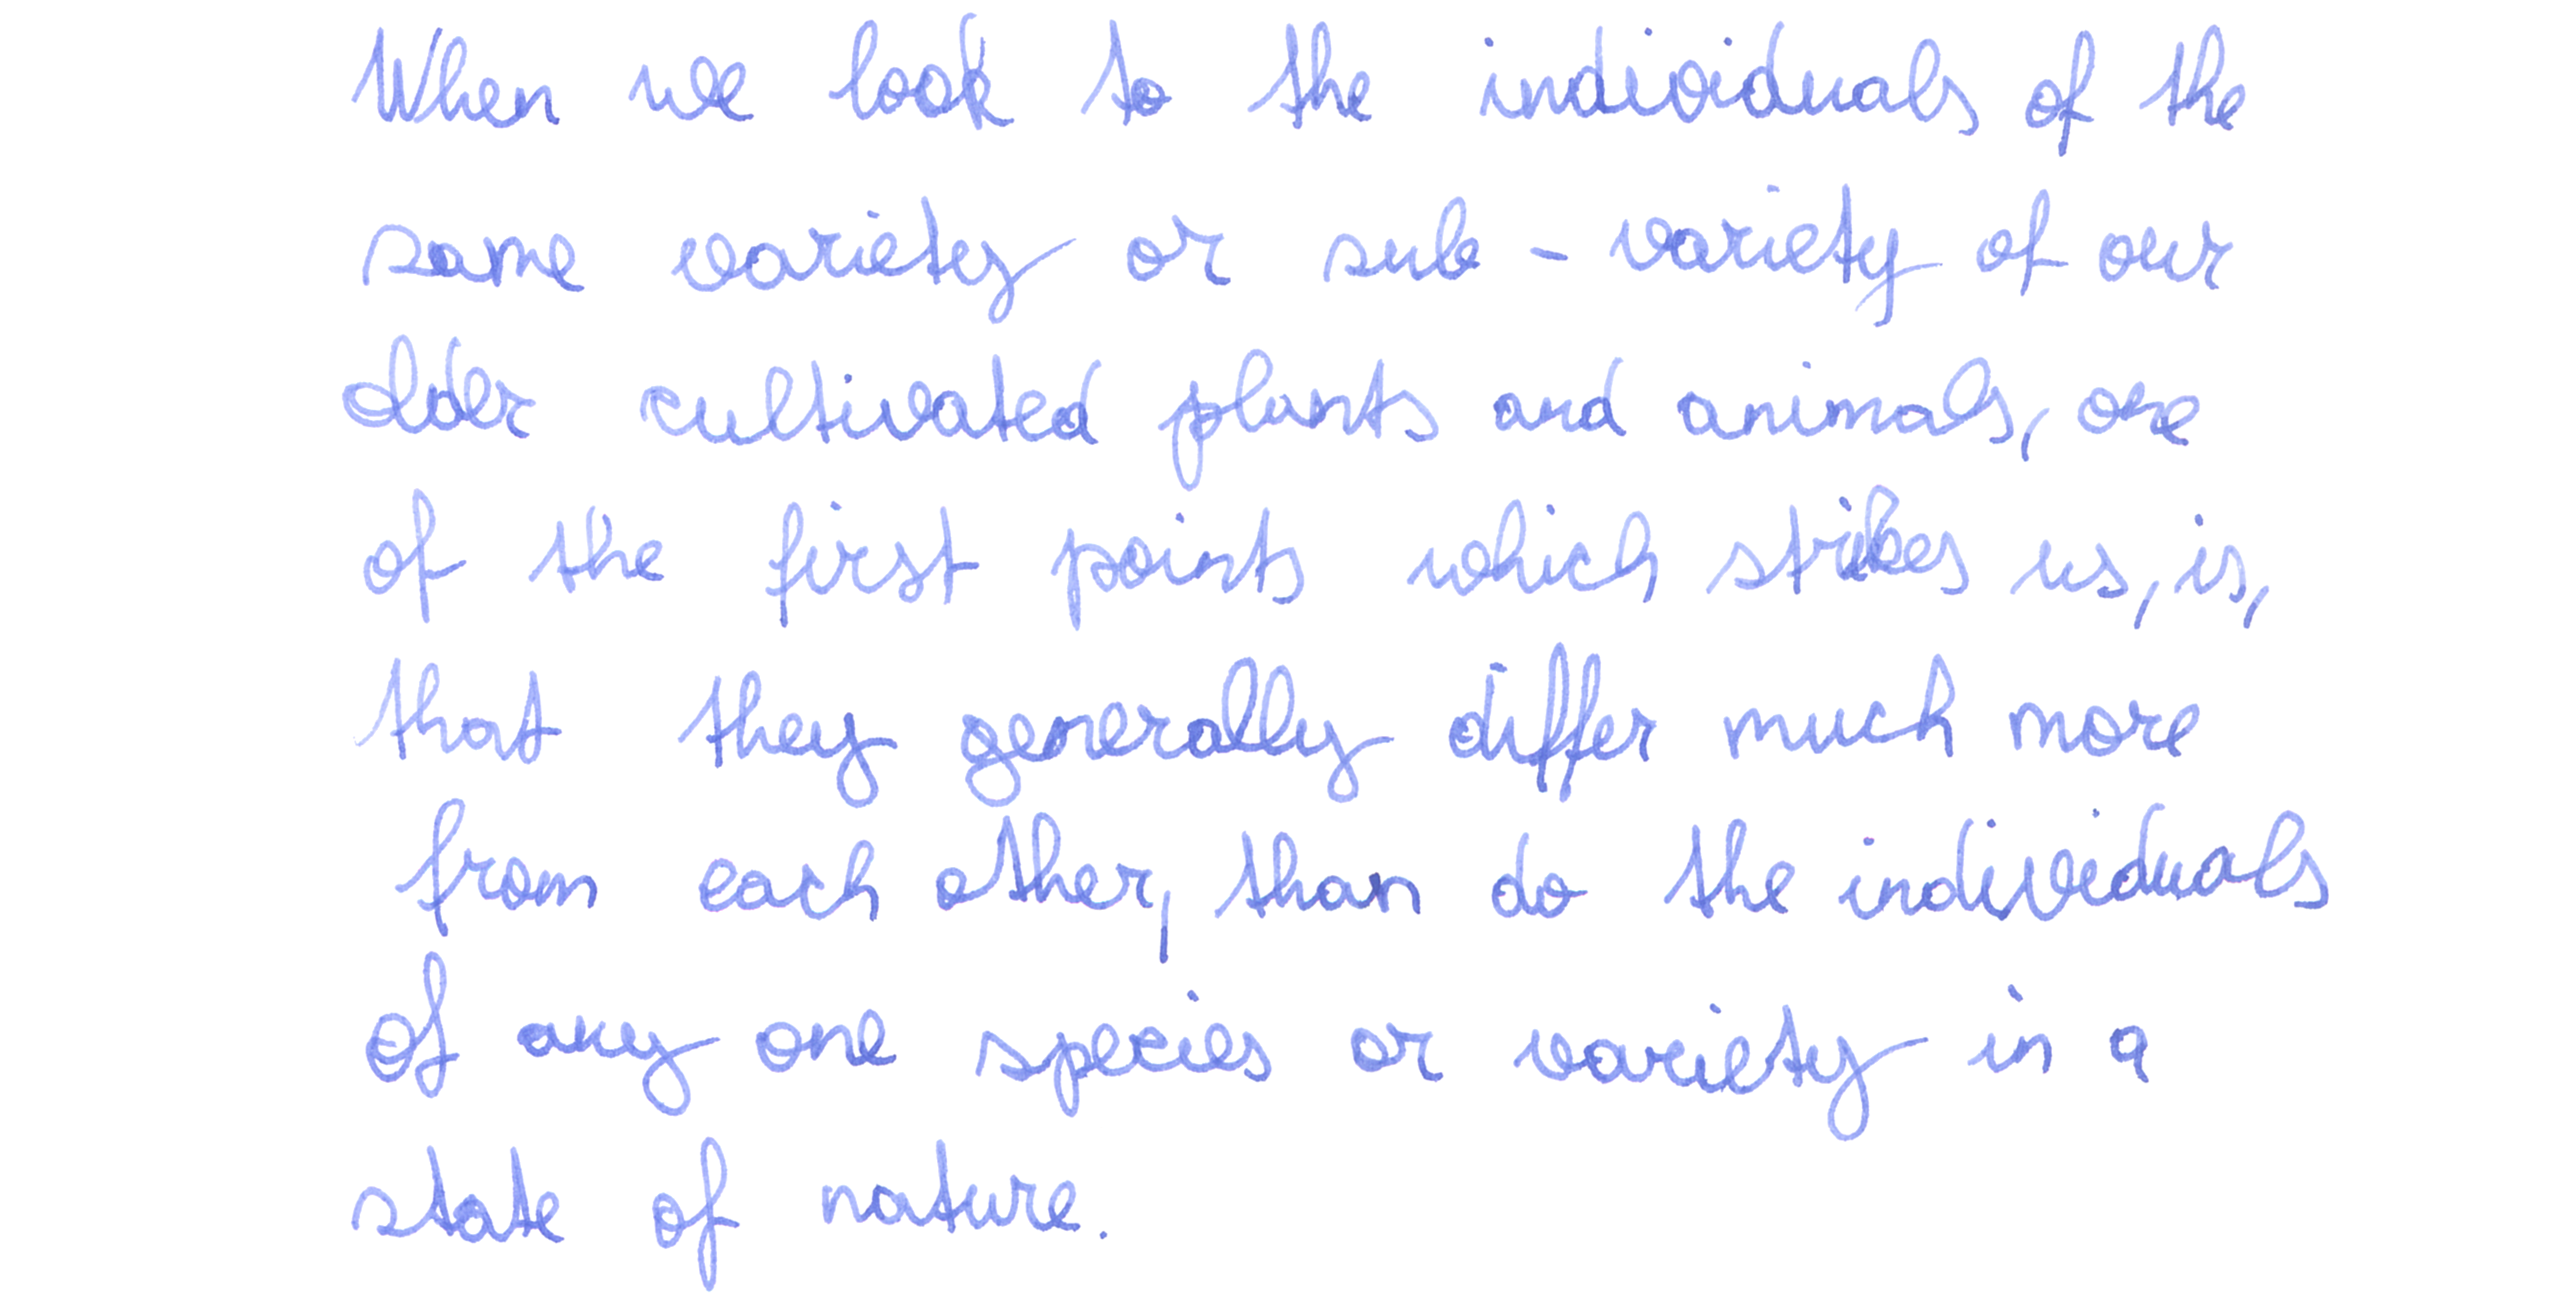 When we look to the individuals of the
same variety or sub - variety of our
older cultivated plants and animals, one
of the first points which strikes us, is,
that they generally differ much more
from each other, than do the individuals
of any one species or variety in a
state of nature.